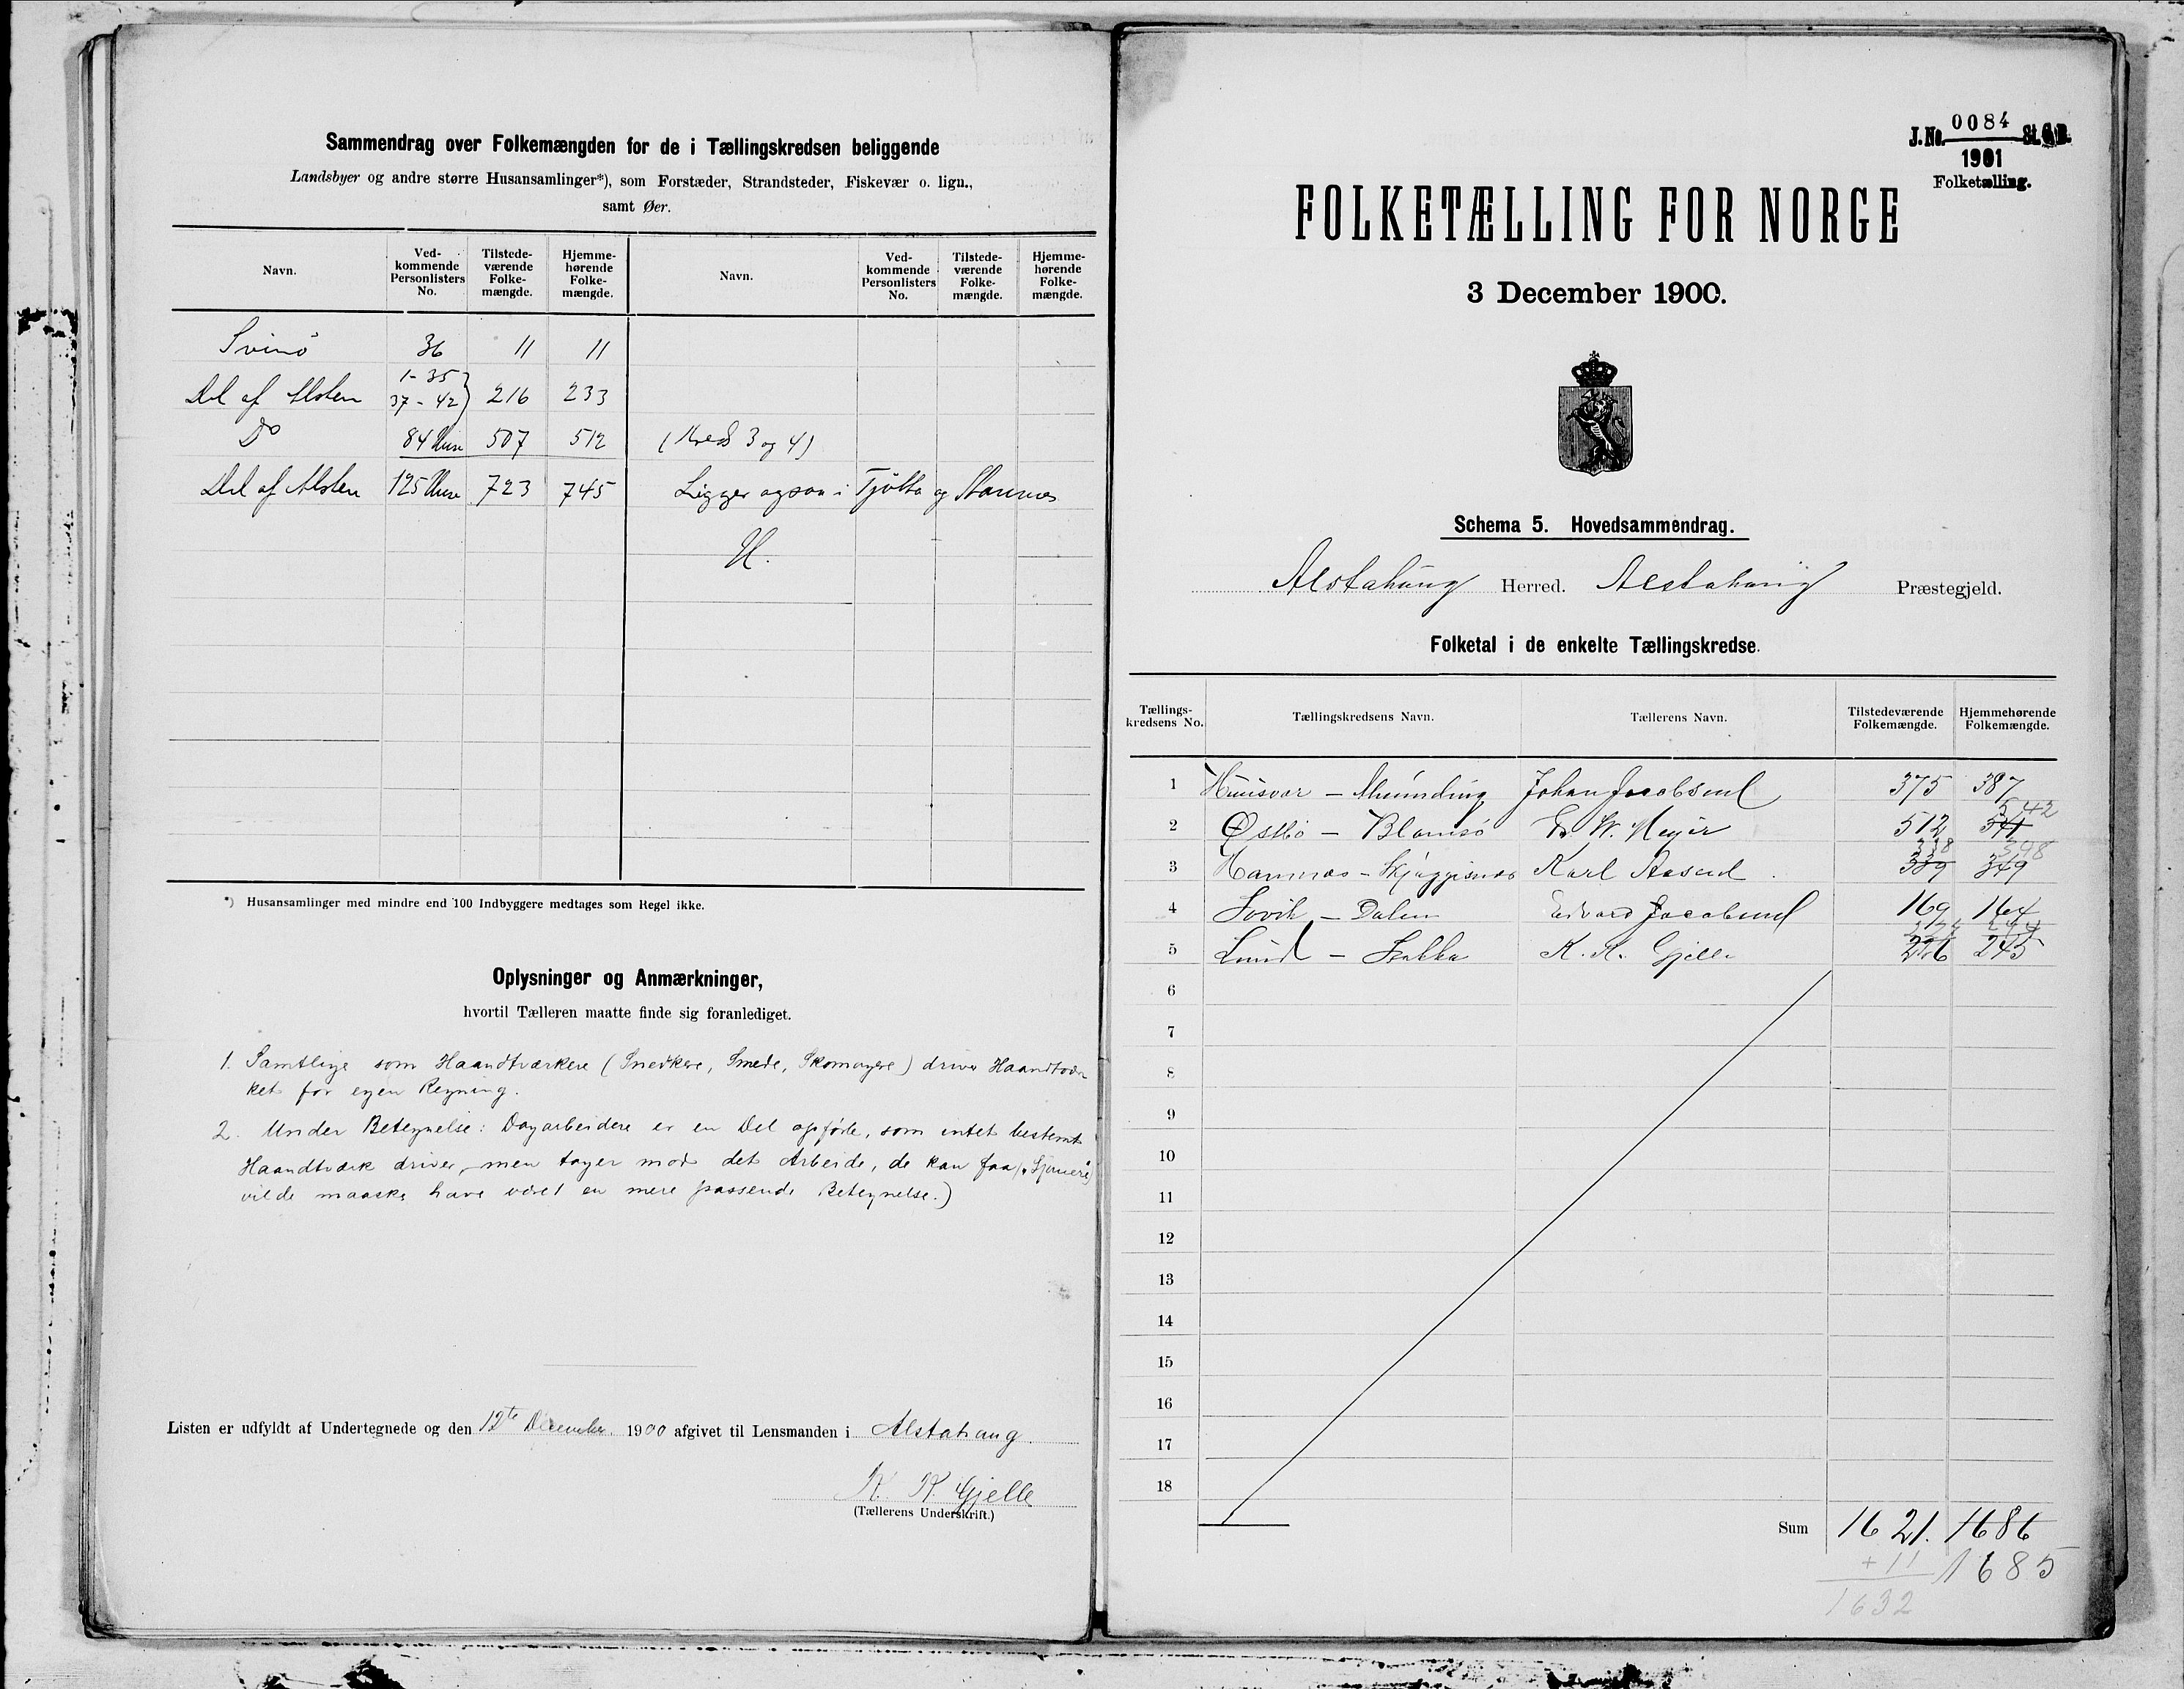 Sammendrag over Folkemængden for de i Tællingskredsen beliggende
Landsbyer og andre større Husansamlinger*), som Forstæder, Strandsteder, Fiskevær o. lign.,
samt Øer.
Navn. Ved-kommende Personlisters No. Tilstede-værende Folke-mængde. Hjemme-hørende Folke-mængde. Navn. Ved-kommende Personlisters No. Tilstede-værende Folke-mængde. Hjemme-hørende Folke-mængde.
Svinö 36 11 11
Del af Alsten 1-35 37-42 216 233
Do 84 Huse 507 512 (Kreds 3 og 4)
Del af Alsten 125 Huse 723 745 Ligger ogsaa i Tjötta og Stamnes
H.
*) Husansamlinger med mindre end 100 Indbyggere medtages som Regel ikke.
Oplysninger og Anmærkninger,
hvortil Tælleren maatte finde sig foranlediget.
1. Samtlige som Haandtværkere (Snedkere, Smede, Skomagere) driver Haandtvær
ket for egen Regning.
2. Under Betegnelse: Dagarbeidere er en Del opförte, som intet bestemt
Haandtværk driver, men tager mod det Arbeide, de kan faa
vilde maaske have været en mere passende Betegnelse.)
Listen er udfyldt af Undertegnede og den 12te December 1900 afgivet til Lensmanden i Alstahaug
K. K. Gjelle
(Tællerens Underskrift.)
J. No. 0084
1901
Folketælling.
FOLKETÆLLING FOR NORGE
3 December 1900.
Schema 5. Hovedsammendrag.
Alstahaug Herred. Alstahaug Præstegjeld.
Folketal i de enkelte Tællingskredse.
Tællings-kredsens No. Tællingskredsens Navn. Tællerens Navn. Tilstedeværende Folkemængde. Hjemmehørende Folkemængde.
1 Johan Jacobsen 375 387
2 Østbö - Blomsö Meyer 512 541 542
3 Karl Aasen 339 338 349
4 Sövik - Dalen Edvard Jacobsen 169 164
5 Lund - K. K. Gjelle 226 245
6
7
8
9
10
11
12
13
14
15
16
17
18
Sum 1621. 1686
+ 11 1685
1632